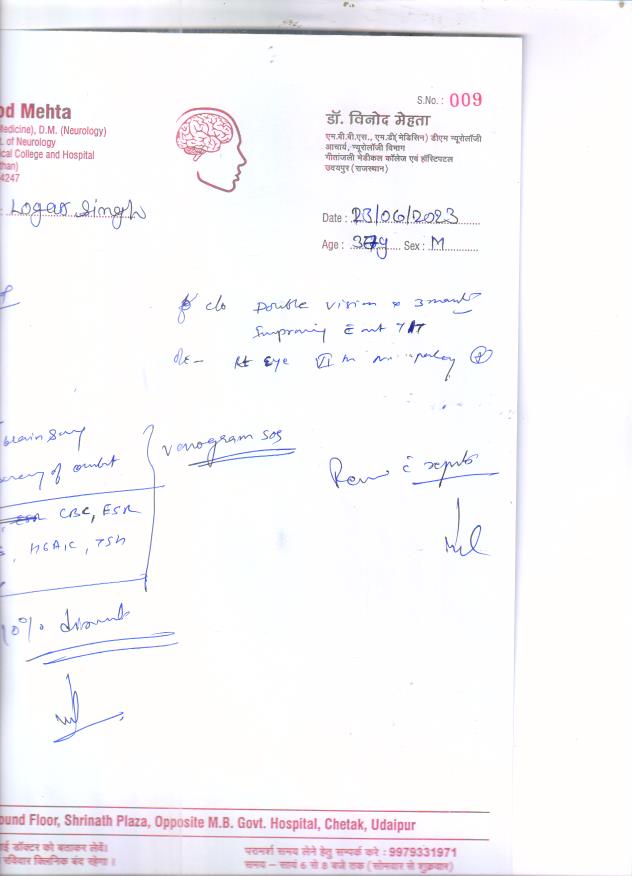 S.No.: 009
od Mehta
डॉ. विनोद मेहता
Medicine), D.M. (Neurology)
एम.बी.बी.एस., एम.डी(मेडिसिन) डीएम न्यूरोलॉजी
. of Neurology
आचार्य, न्यूरोलॉजी विभाग
cal College and Hospital
गीतांजली मेडीकल कॉलेज एवं हॉस्पिटल
than)
उदयपुर (राजस्थान)
4247
Singh
Date : 23/06/2023
Age : 37y Sex : M
c/o Double vision x 3 month
Improving
Rt Eye VI
brain
Venogram SOS
of orbit
CBC, ESR
HbA1c, TSH
10% discount
ound Floor, Shrinath Plaza, Opposite M.B. Govt. Hospital, Chetak, Udaipur
ाई डॉक्टर को बताकर लेवें।
परामर्श समय लेने हेतु सम्पर्क करे : 9979331971
रविवार क्लिनिक बंद रहेगा।
समय – सायं 6 से 8 बजे तक (सोमवार से शुक्रवार)